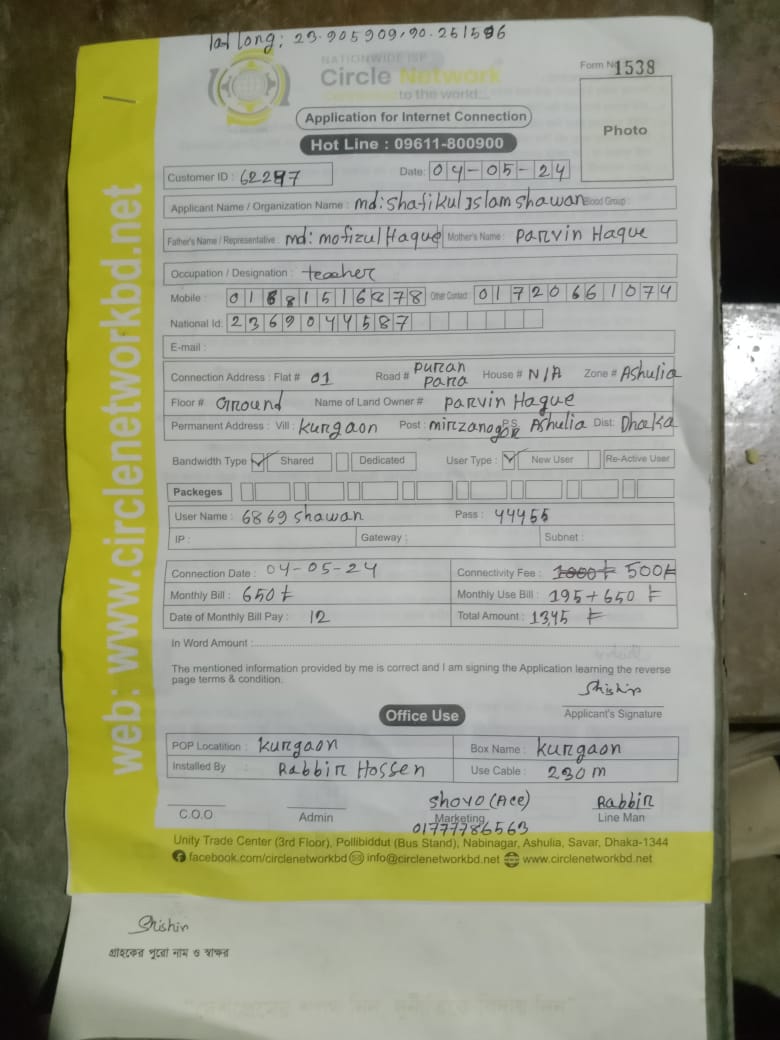 lat long: 23.905909,90.261596
NATIONWIDE ISP
Circle Network
Connecting to the world...
Form No 1538
Application for Internet Connection
Photo
Hot Line : 09611-800900
Customer ID : 62297 Date: 04-05-24
Applicant Name / Organization Name : md: Shafikul Islam Shawan Blood Group :
Father's Name / Representative : md: mofizul Haque Mother's Name : Parvin Haque
Occupation / Designation : teacher
Mobile : 01681516878 Other Contact : 01720661074
National Id: 2369044587
E-mail :
Connection Address : Flat # 01 Road # Puran Para House # N/A Zone # Ashulia
Floor # Ground Name of Land Owner # Parvin Haque
Permanent Address : Vill : Kurgaon Post : mirzanagor P.S Ashulia Dist: Dhaka
Bandwidth Type Shared Dedicated User Type : New User Re-Active User
Packeges
User Name : 6869 Shawan Pass : 44455
IP : Gateway : Subnet :
Connection Date : 04-05-24 Connectivity Fee : 1000 ৳ 500৳
Monthly Bill : 650৳ Monthly Use Bill : 195+650 ৳
Date of Monthly Bill Pay : 12 Total Amount : 1345 ৳
In Word Amount :
The mentioned information provided by me is correct and I am signing the Application learning the reverse
page terms & condition.
Shishir
Applicant's Signature
Office Use
POP Locatition : Kurgaon Box Name : Kurgaon
Installed By Rabbir Hossen Use Cable : 230 m
Shovo (Ace) Rabbir
C.O.O Admin Marketing Line Man
01777786563
Unity Trade Center (3rd Floor), Pollibiddut (Bus Stand), Nabinagar, Ashulia, Savar, Dhaka-1344
facebook.com/circlenetworkbd info@circlenetworkbd.net www.circlenetworkbd.net
web: www.circlenetworkbd.net
Shishir
গ্রাহকের পুরো নাম ও স্বাক্ষর